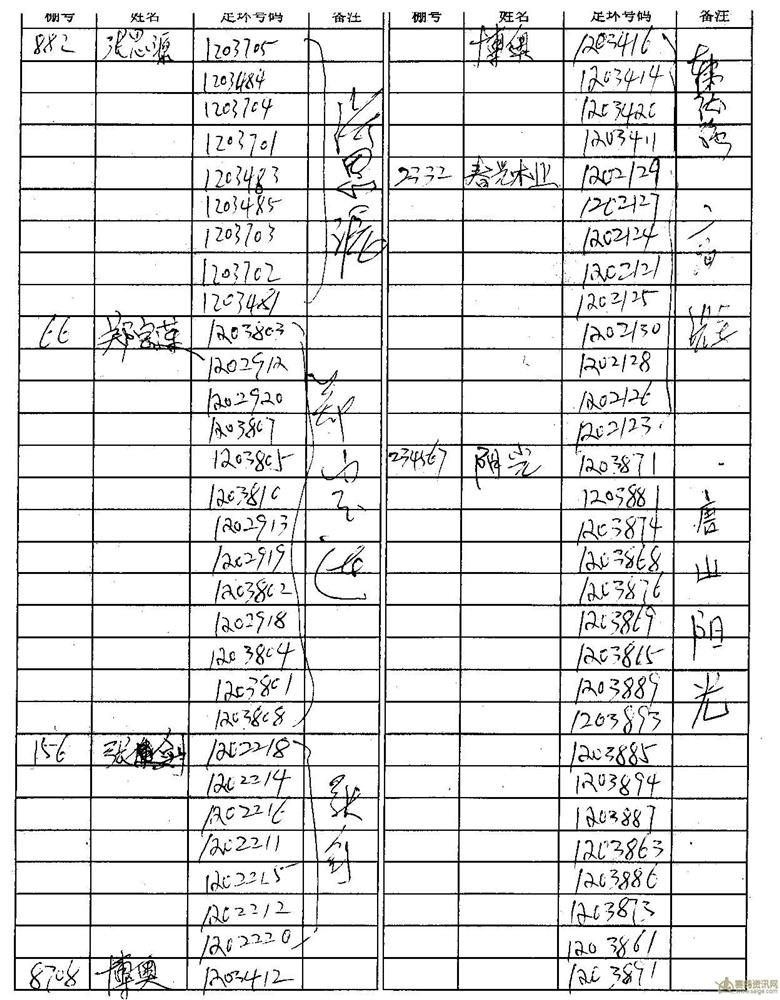 棚号 姓名 足环号码 备注
882 张思源 1203705
1203484
1203704
1203701
1203483
1203485
1203703
1203702
1203481
66 1203803
1202912
1202920
1203807
1203805
1203810
1202913
1202919
1203802
1202918
1203804
1203801
1203808
156 1202218
1202214
1202216
1202211
1202215
1202212
1202220
张剑
8708 博奥 1203412
棚号 姓名 足环号码 备注
博奥 1203416
1203414
1203420
1203411
2332 春光木业 1202129
1202127
1202124
1202121
1202125
1202130
1202128
1202126
1202123
234567 阳光 1203871
1203881
1203874
1203868
1203876
1203869
1203865
1203889
1203893
1203885
1203894
1203887
1203863
1203886
1203873
1203861
1203891
唐山阳光
赛鸽资讯网
www.saige.com